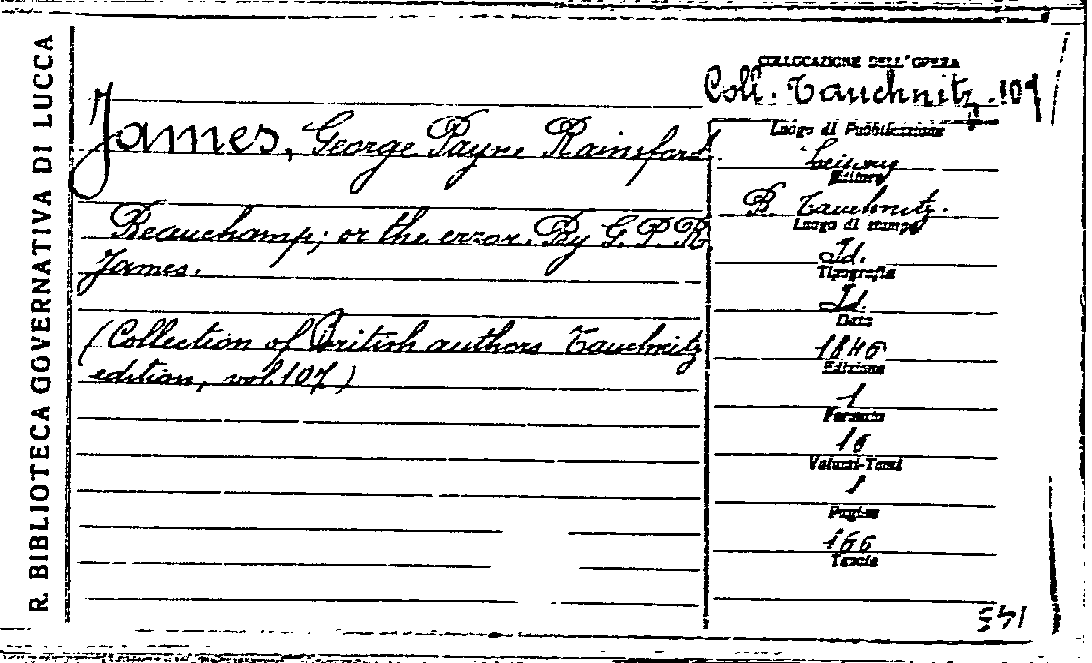 R. BIBLIOTECA GOVERNATIVA DI LUCCA
COLLOCAZIONE DELL'OPERA
Coll. Tauchnitz. 107
James, George Payne Rainsford.
Beauchamp; or the error. By G. P. R.
James.
(Collection of British authors Tauchnitz
edition, vol. 107)
Luogo di Pubblicazione
Editore
B Tauchnitz.
Luogo di stampa
Id.
Tipografia
Id.
Data
1846
Edizione
1
Formato
16
Volumi-Tomi
1
Pagine
166
Tavole
143